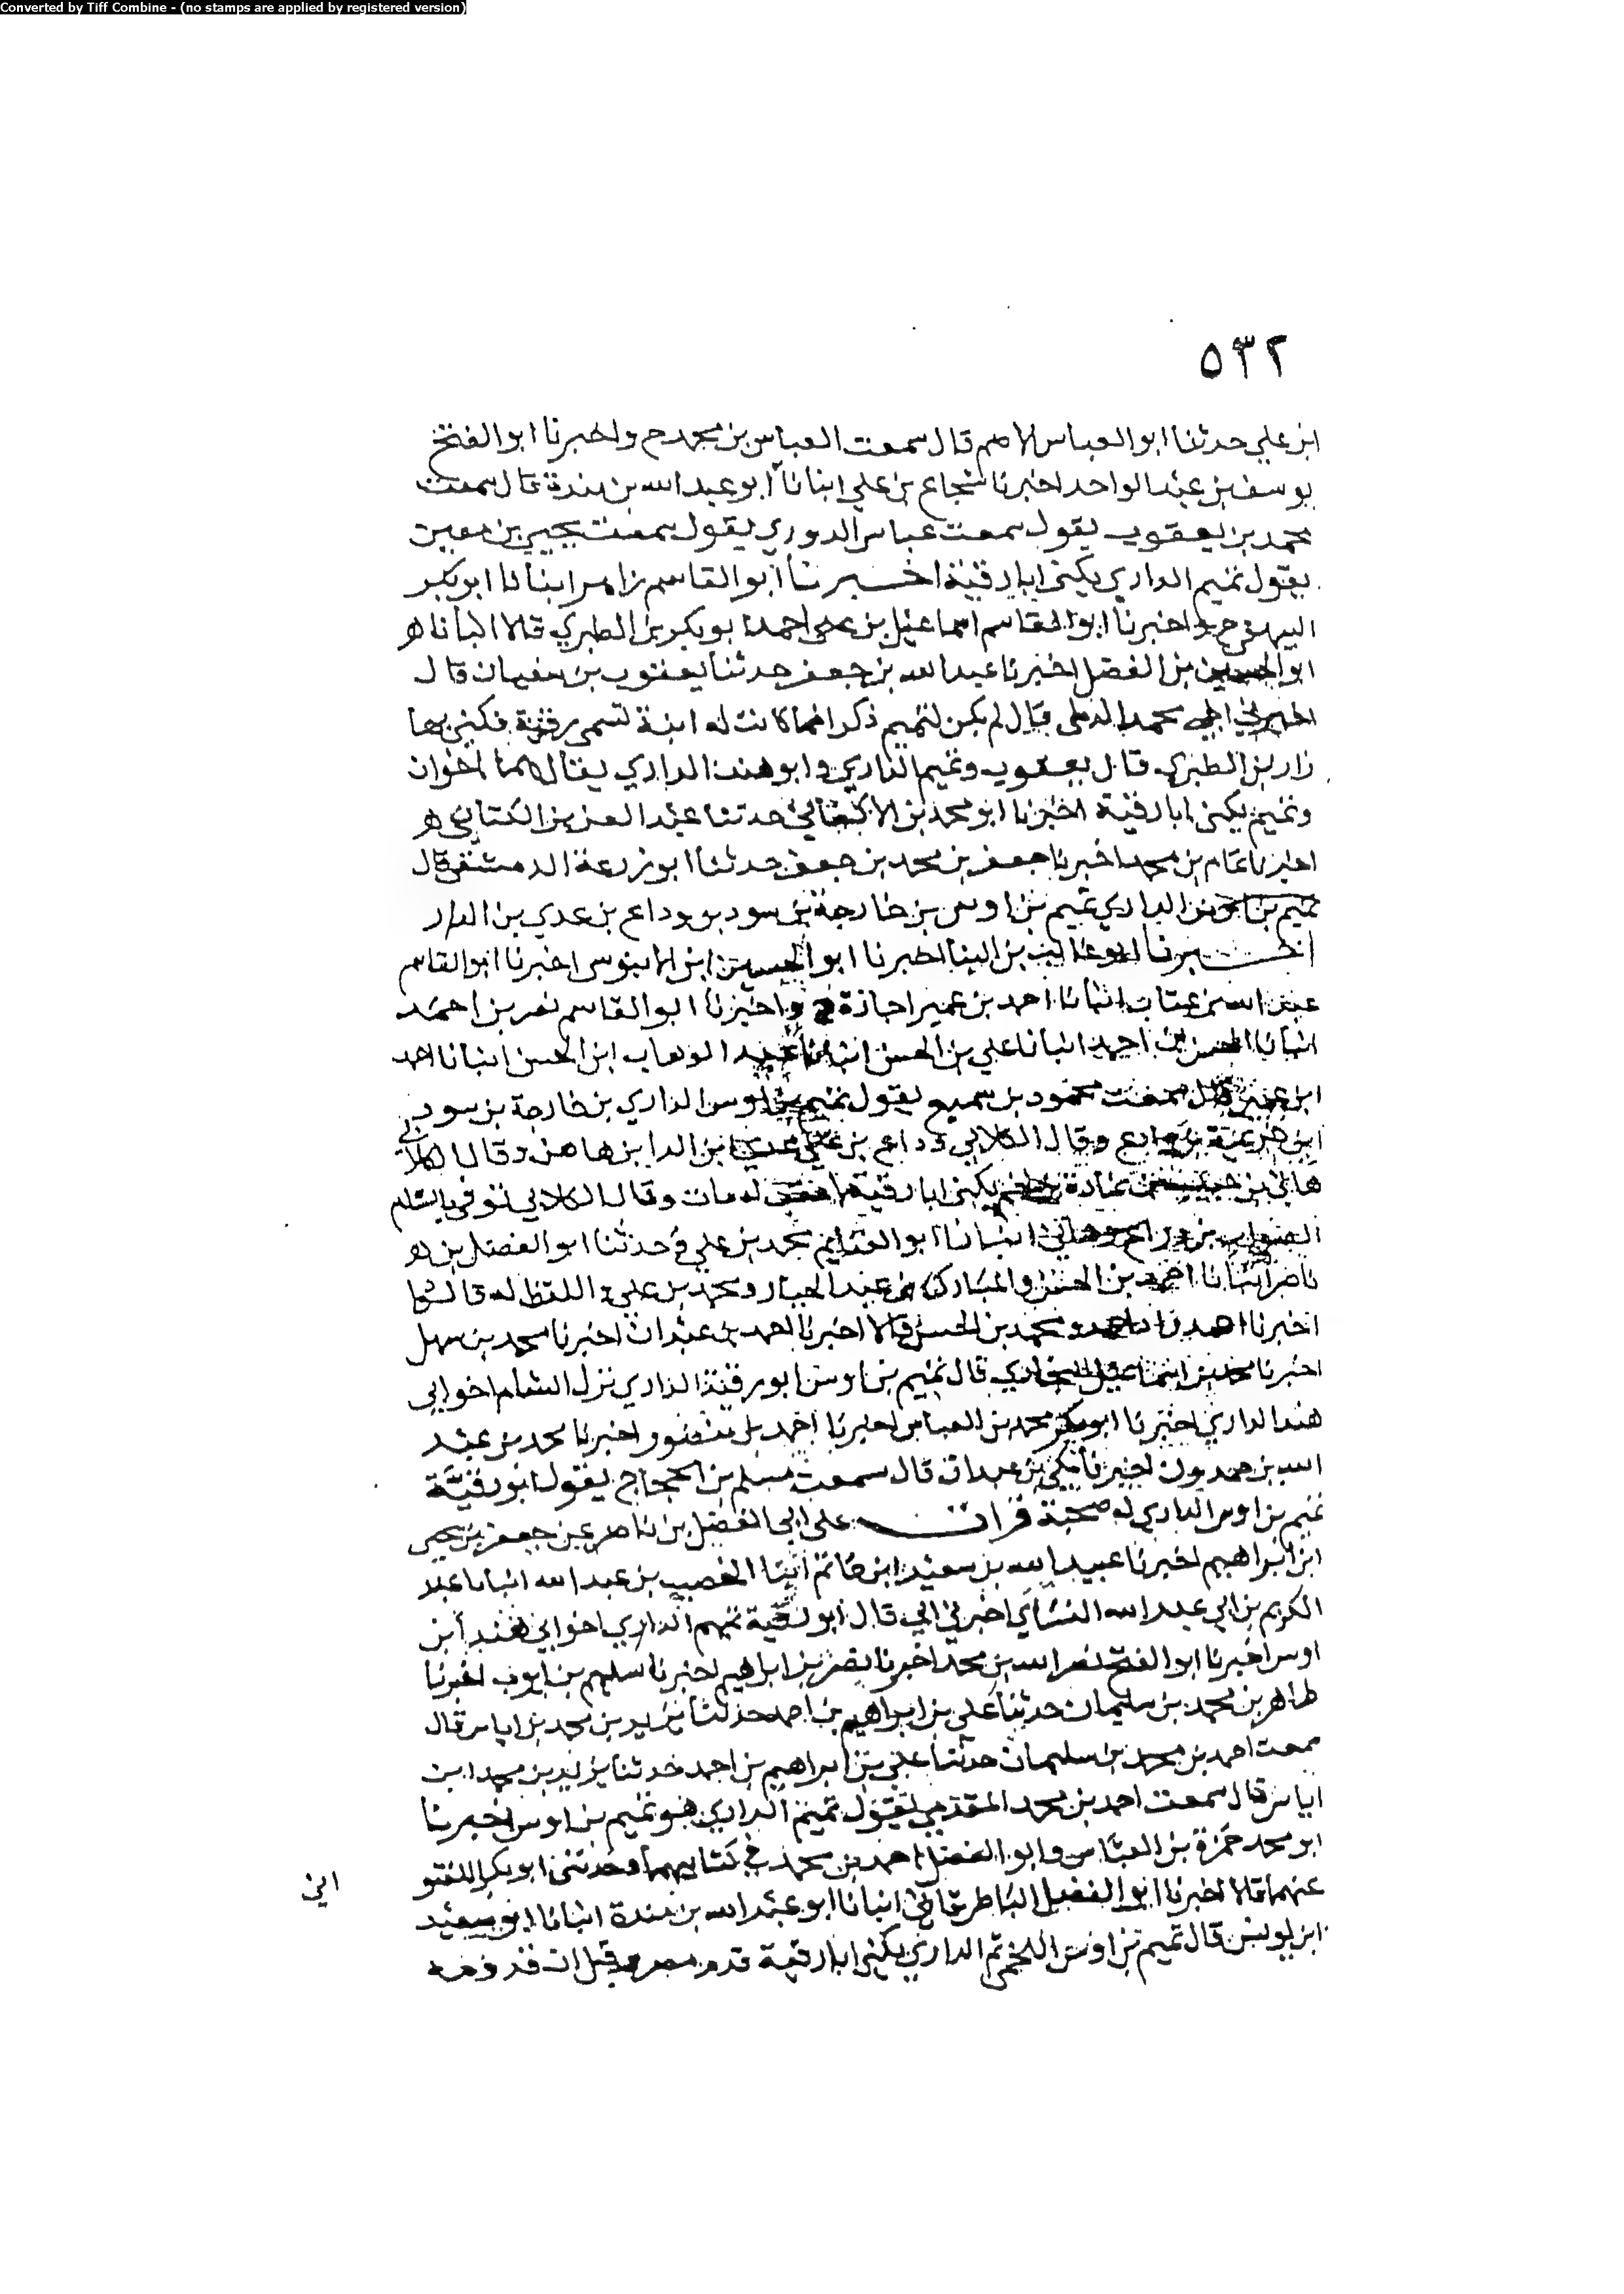 Converted by Tiff Combine - (no stamps are applied by registered version)
٥٣٢
ابن علي حدثنا ابو العباس الاصم قال سمعت العباس بن محمد ح واخبرنا ابو الفتح
يوسف بن عبد الواحد اخبرنا شجاع بن علي انبانا ابو عبد الله بن مندة قال سمعت
محمد بن يعقوب يقول سمعت عباس الدوري يقول سمعت يحيى بن معين
يقول تميم الداري يكنى ابا رقية اخبرنا ابو القاسم زاهر انبانا ابو بكر
البيهقي ح واخبرنا ابو القاسم اسماعيل بن احمد ابو بكر بن الطبري قالا انبانا
ابو الحسين بن الفضل اخبرنا عبد الله بن جعفر حدثنا يعقوب بن سفيان قال
محمد قال لم يكن لتميم ذكر انما كانت له ابنة تسمى رقية فكني بها
زاد ابن الطبري قال يعقوب وتميم الداري وابو هند الداري يقال هما اخوان
وتميم يكنى ابا رقية اخبرنا ابو محمد بن الاكفاني حدثنا عبد العزيز الكتاني
اخبرنا تمام بن محمد اخبرنا جعفر بن محمد بن جعفر حدثنا ابو زرعة الدمشقي قال
الداري تميم بن اوس بن خارجة بن سود بن وداع بن عدي بن الدار
اخبرنا ابو غالب بن البنا اخبرنا ابو الحسين ابن الابنوسي اخبرنا ابو القاسم
عبد الله بن عتاب انبانا احمد بن عمير اجازة ح واخبرنا ابو القاسم نصر بن احمد
انبانا الحسن بن احمد انبانا علي بن الحسن انبانا عبد الوهاب ابن الحسن انبانا احمد
ابن عمير قال سمعت محمود بن سميع يقول تميم بن اوس الداري بن خارجة بن سود
ابن وقال الكلابي وداع بن عدي ابن الدار بن هاني وقال الكلابي
هاني بن حبيب بن نمارة بن لخم يكنى ابا رقية مات وقال الكلابي توفي بالشام
الصواب بن انبانا ابو الغنايم محمد بن علي ثم حدثنا ابو الفضل بن
ناصر انبانا احمد بن الحسن والمبارك بن عبد الجبار ومحمد بن علي واللفظ له قالوا
اخبرنا احمد ومحمد بن الحسن قالا اخبرنا احمد بن عبدان اخبرنا محمد بن سهل
اخبرنا محمد بن اسماعيل البخاري قال تميم بن اوس ابو رقية الداري نزل الشام اخو ابي
هند الداري اخبرنا ابو بكر محمد بن العباس اخبرنا احمد بن منصور اخبرنا محمد بن عبد
الله بن حمدون اخبرنا مكي بن عبدان قال سمعت مسلم بن الحجاج يقول ابو رقية
تميم بن اوس الداري له صحبة قرات على ابي الفضل بن ناصر عن جعفر بن يحيى
ابن ابراهيم اخبرنا عبيد الله بن سعيد ابن حاتم انبنا الخصيب بن عبد الله انبانا عبد
الكريم بن ابي عبد الله النسائي اخبرني ابي قال ابو رقية تميم الداري اخو ابي هند ابن
اوس اخبرنا ابو الفتح نصر الله بن محمد اخبرنا نصر بن ابراهيم اخبرنا سليم بن ايوب اخبرنا
طاهر بن محمد بن سليمان حدثنا علي بن ابراهيم بن احمد حدثنا يزيد بن محمد بن اياس قال
سمعت احمد بن محمد بن سليمان حدثنا علي بن ابراهيم بن احمد حدثنا يزيد بن محمد ابن
اياس قال سمعت احمد بن محمد المقدمي يقول تميم الداري هو تميم بن اوس اخبرنا
ابو محمد حمزة بن العباس وابو الفضل احمد بن محمد في كتابيهما وحدثني ابو بكر اللفتو
عنهما قالا اخبرنا ابو الفضل الباطرقاني انبانا ابو عبد الله بن مندة انبانا ابو سعيد
ابن يونس قال تميم بن اوس اللخمي ثم الداري يكنى ابا رقية قدم مصر قيل ان